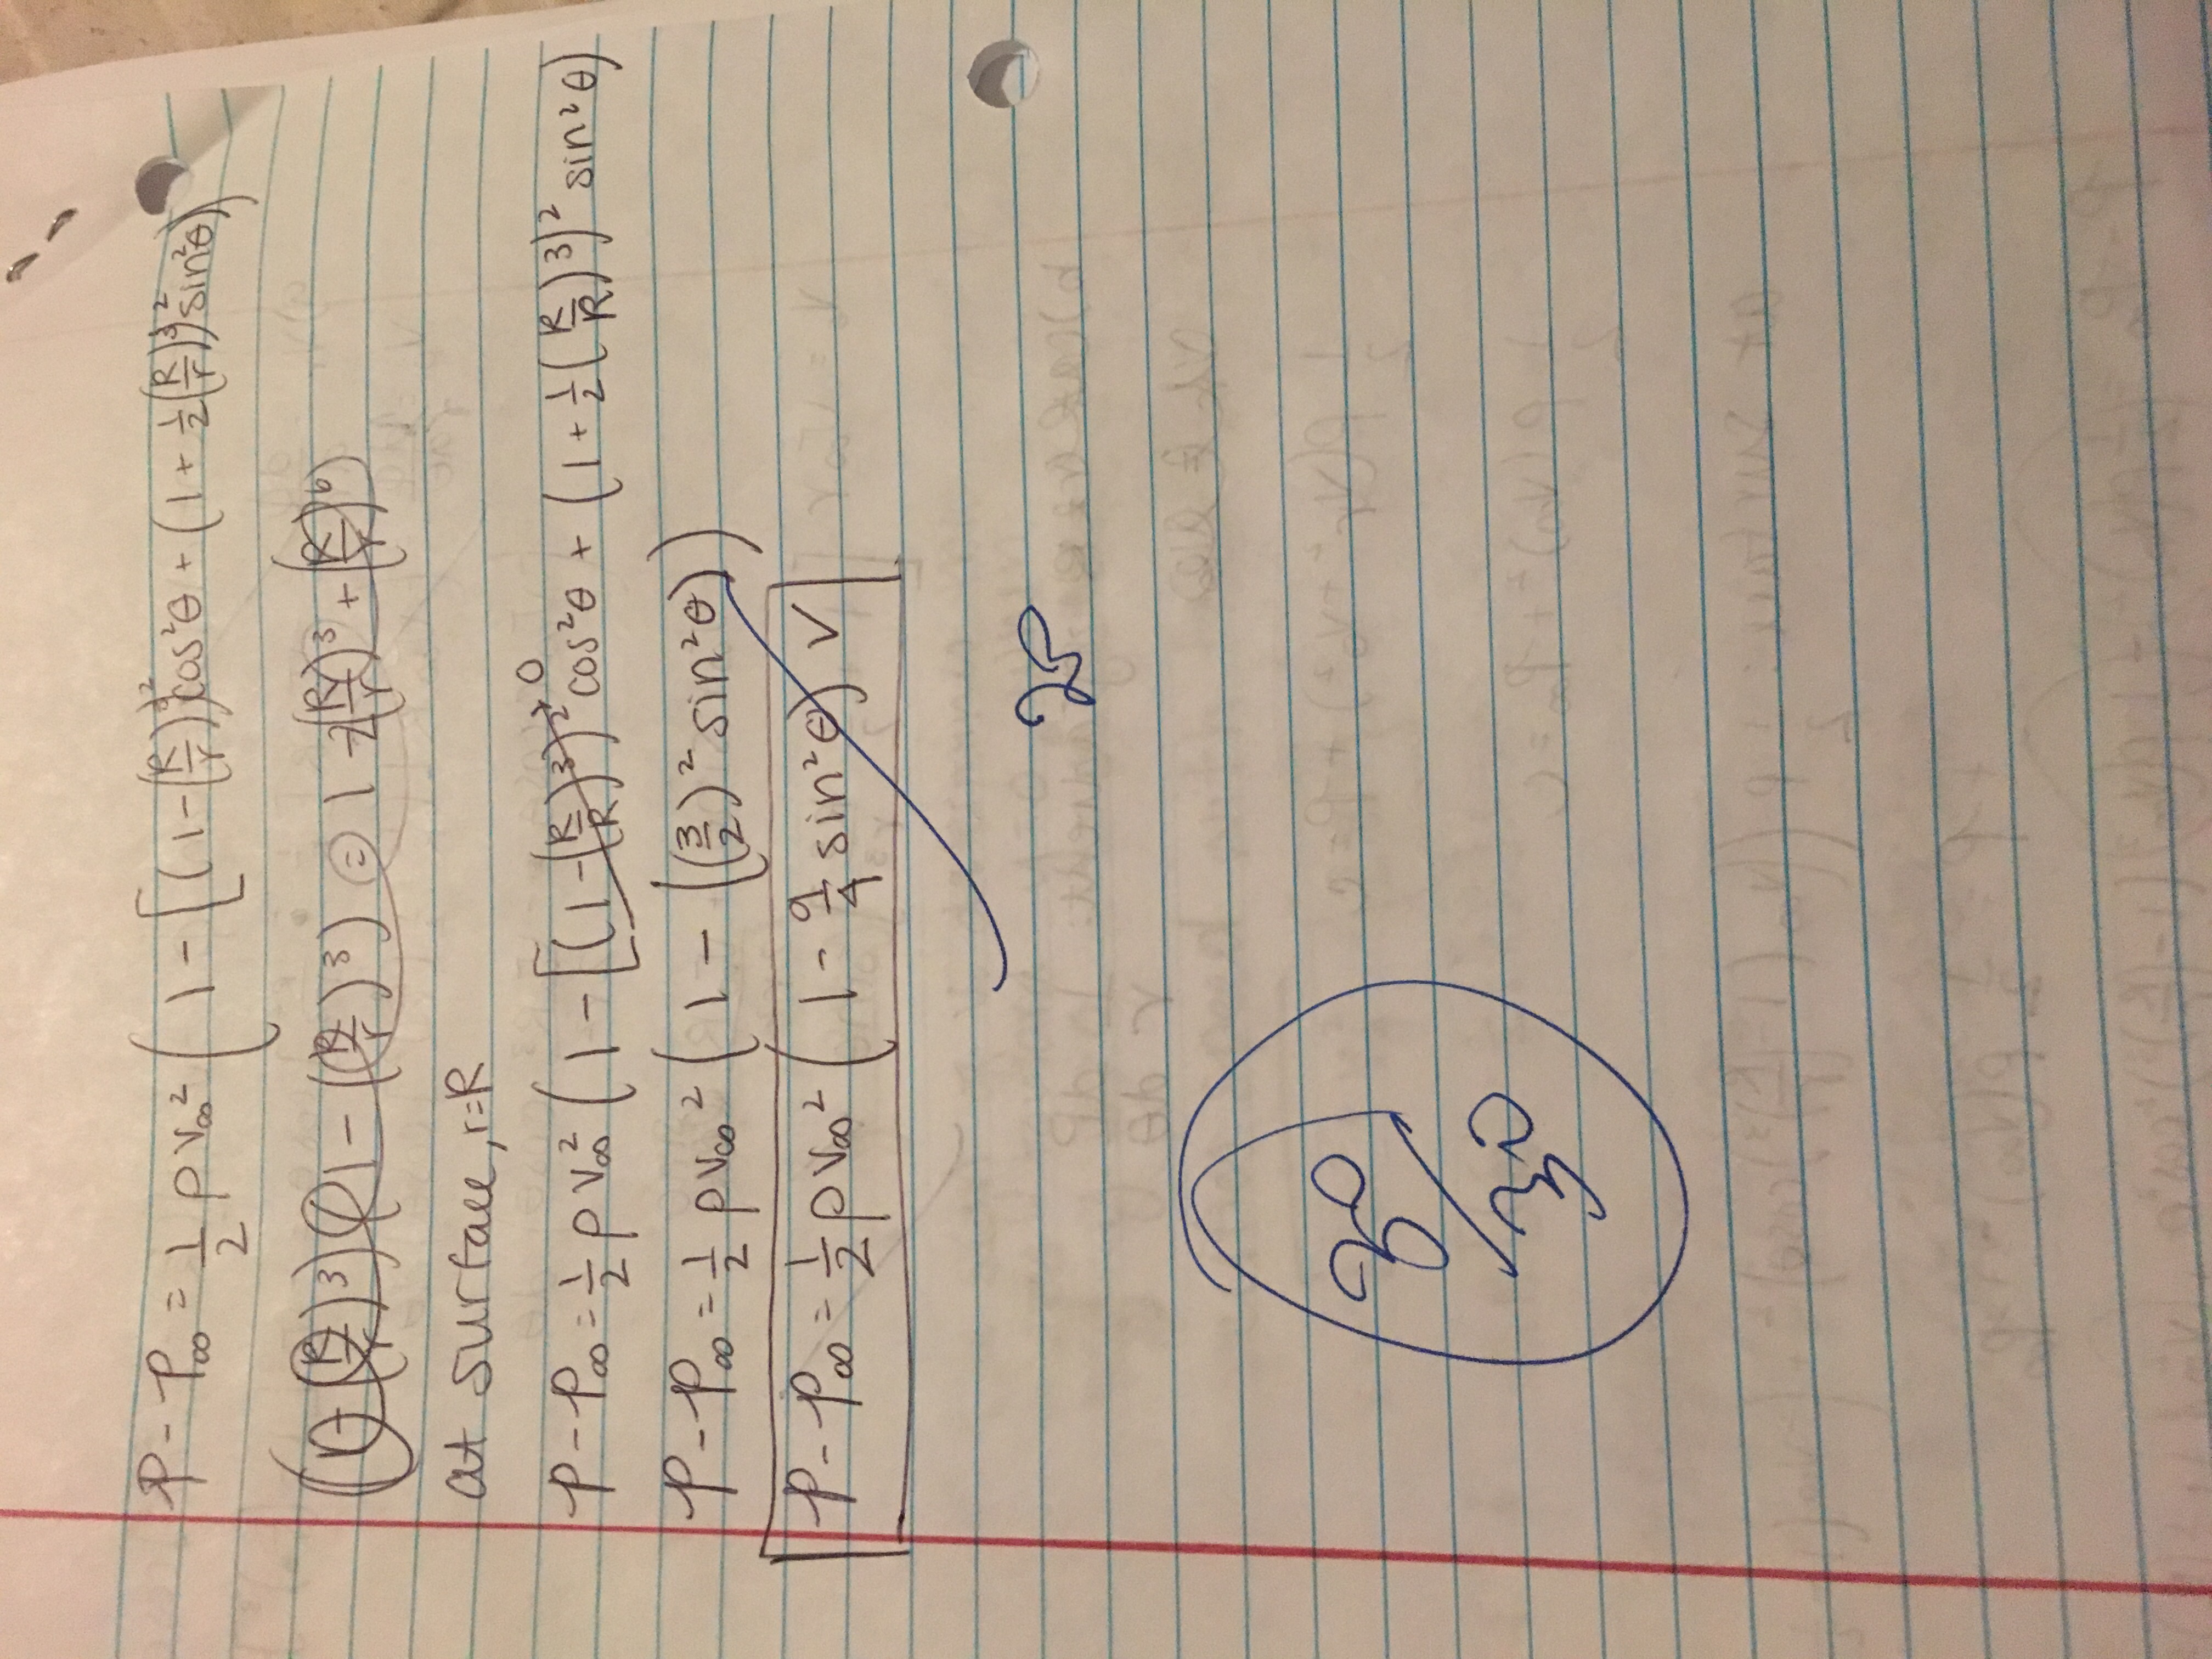 p - p∞ = 1/2 ρ v∞² ( 1 - [ (1 - (R/r)³)² cos²θ + (1 + 1/2 (R/r)³)² sin²θ )
(1 - (R/r)³) (1 - (R/r)³) = 1 - 2(R/r)³ + (R/r)⁶
at surface, r=R
p - p∞ = 1/2 ρ v∞² ( 1 - [ (1 - (R/R)³)² → 0 cos²θ + (1 + 1/2 (R/R)³)² sin²θ )
p - p∞ = 1/2 ρ v∞² ( 1 - ( (3/2)² sin²θ ) )
p - p∞ = 1/2 ρ v∞² ( 1 - 9/4 sin²θ ) ✓
30
30